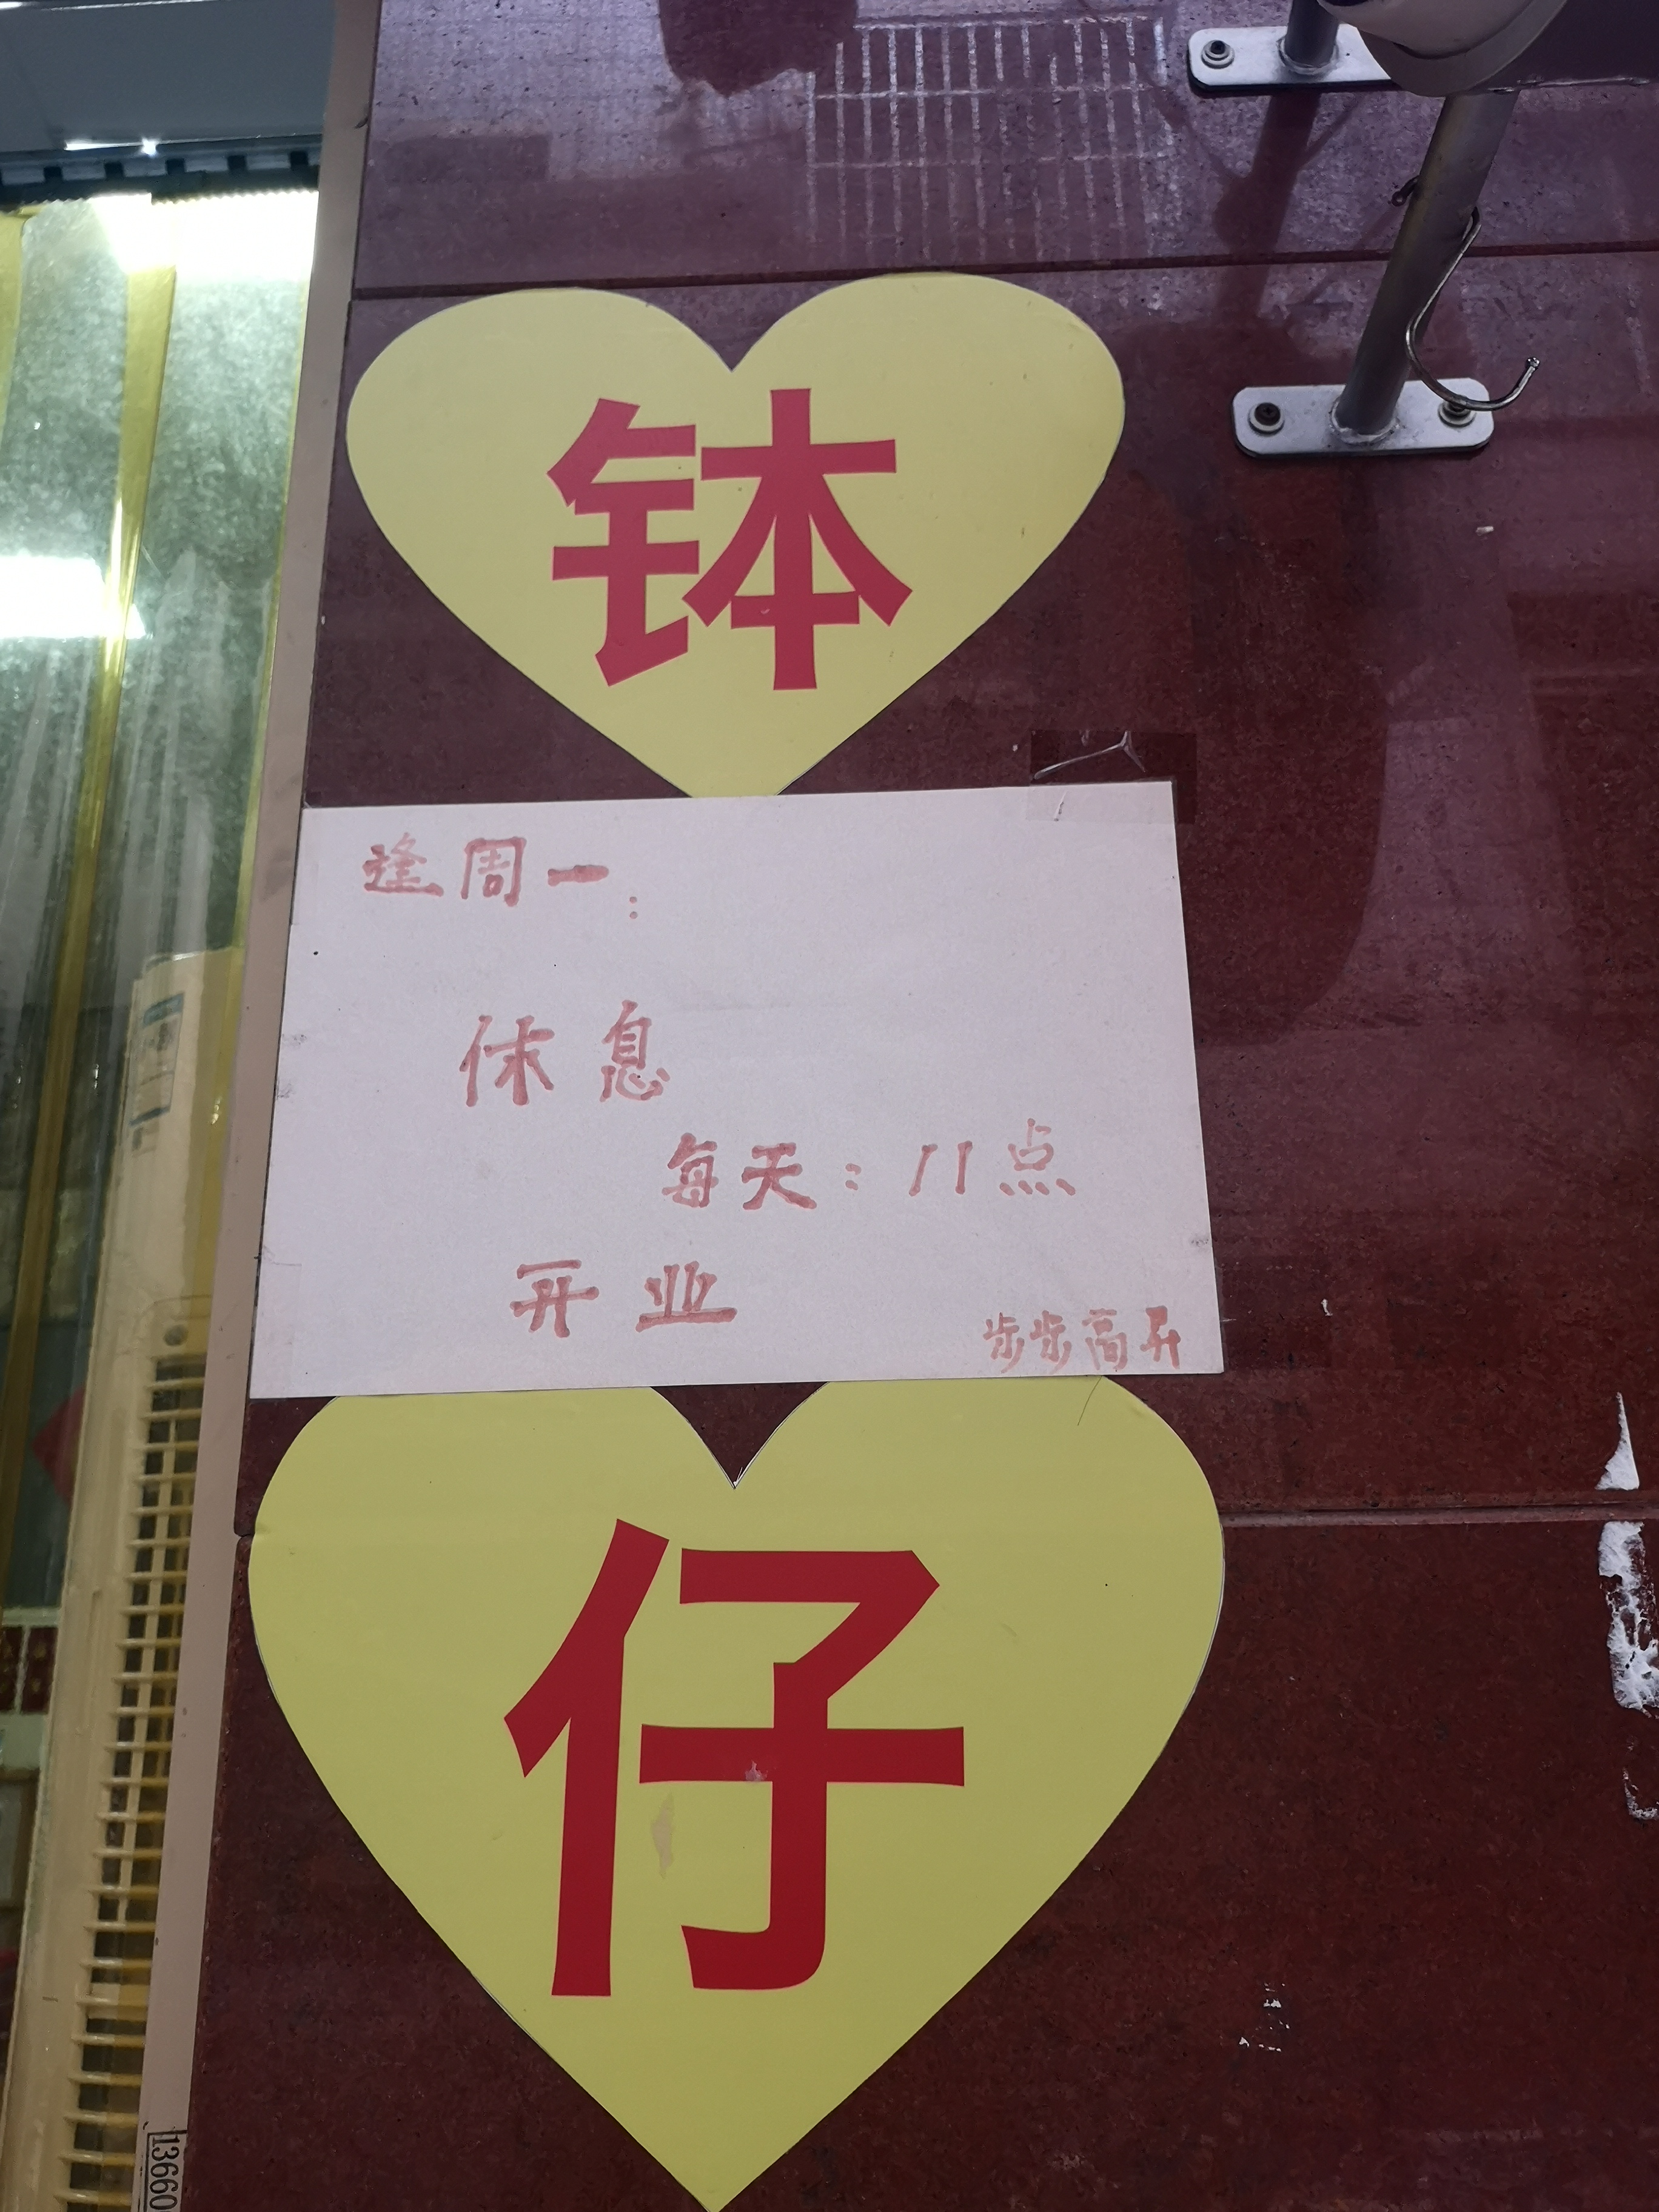 钵
逢周一:
休息
每天:11点
开业
步步高升
仔
13660